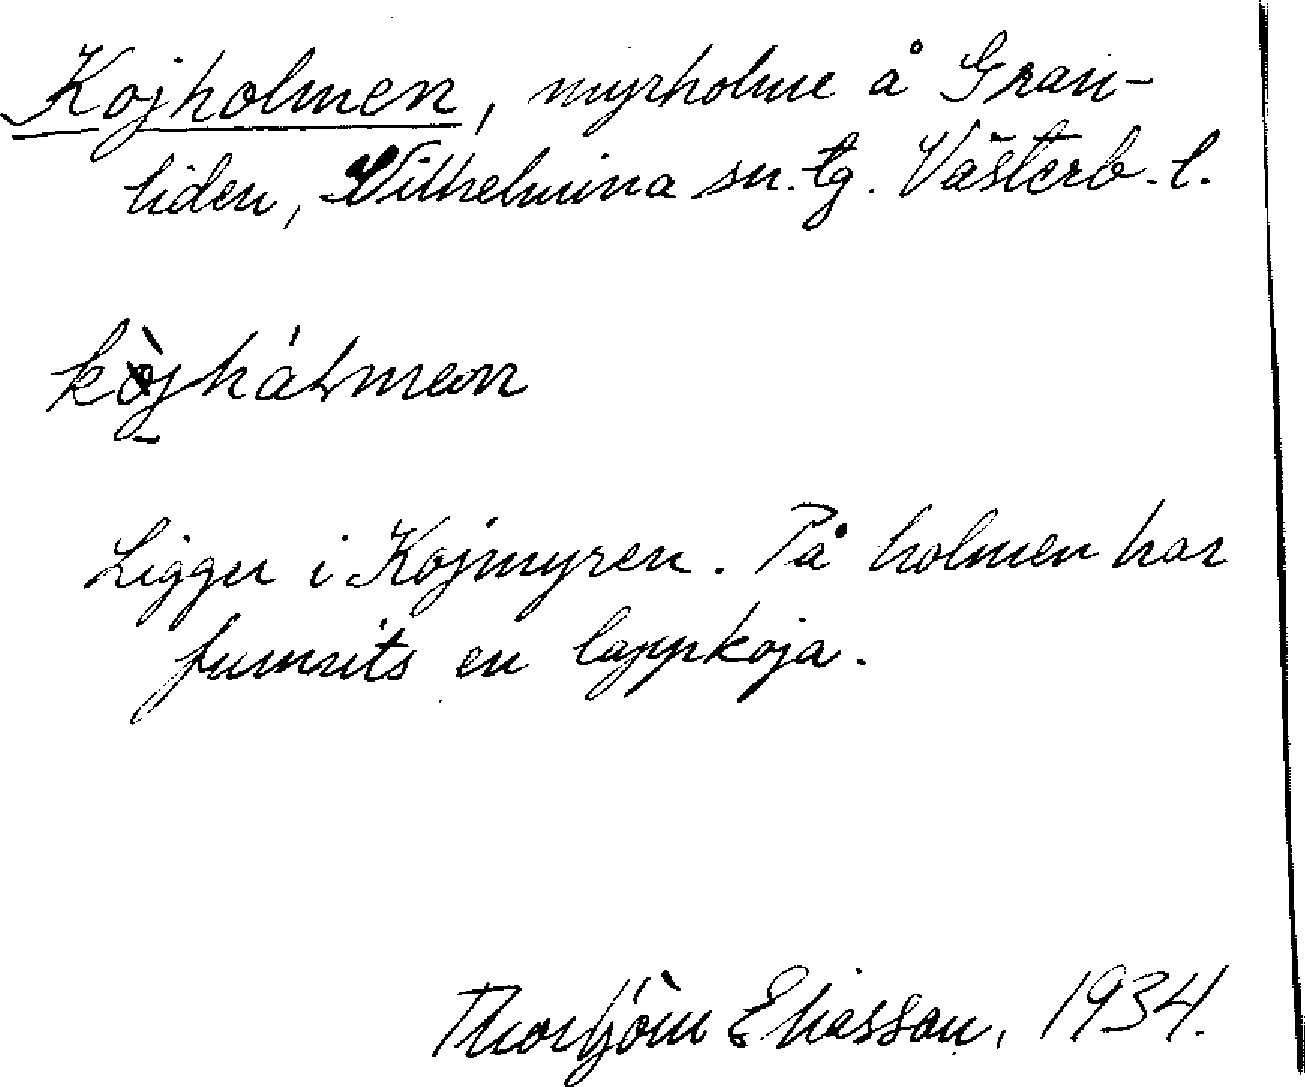 Kojholmen, myrholme å Gran-
liden, Vilhelmina sn. tg. Västerb. l.
kòjhálmen
Ligger i Kojmyren. På holmen har
funnits en lappkoja.
Thorbjörn Eliasson, 1934.